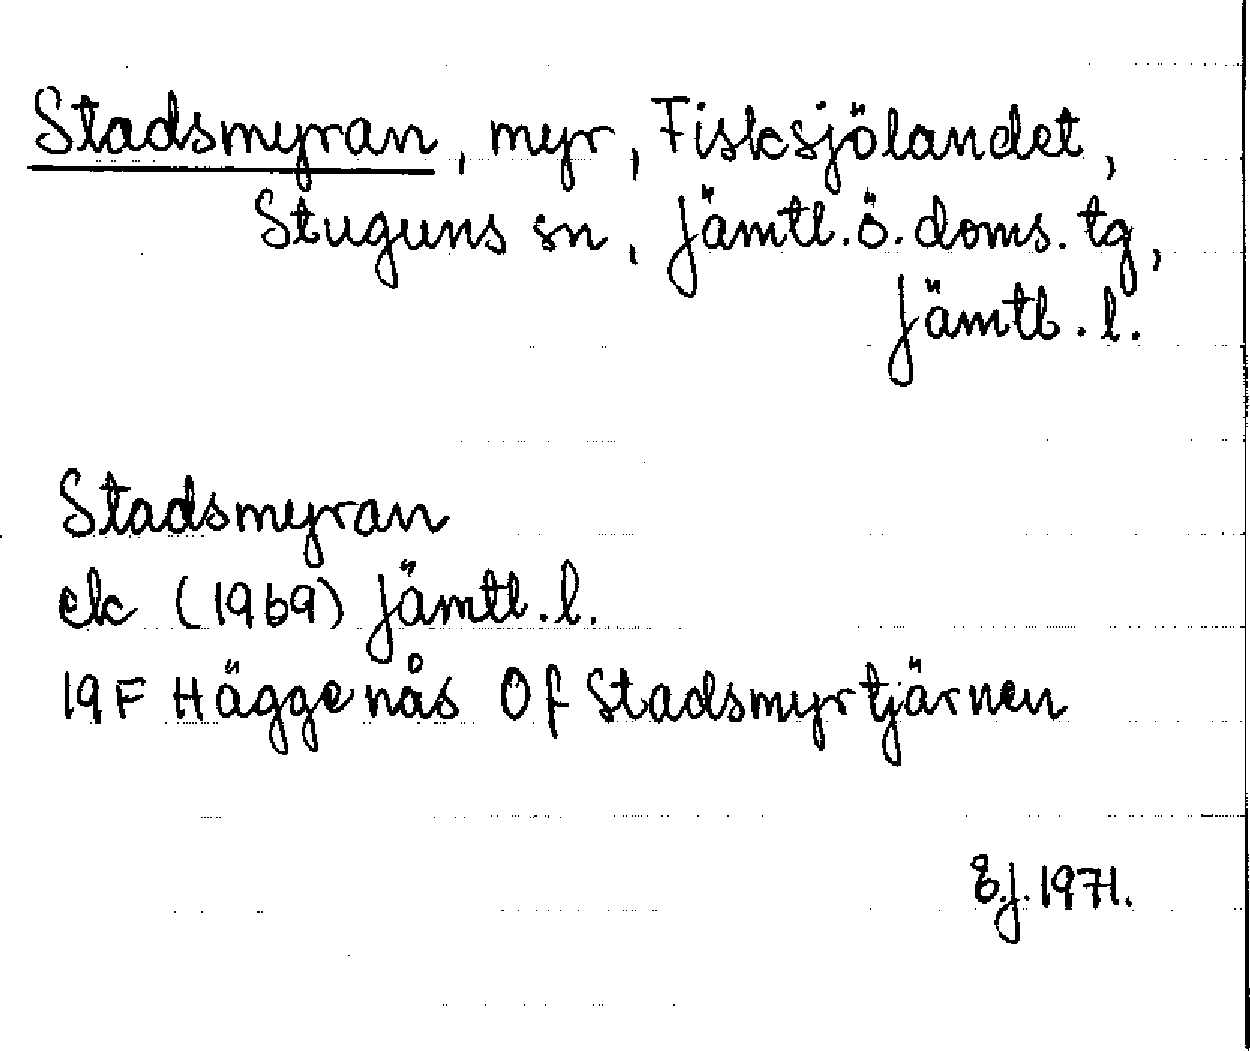 Stadsmyran, myr, Fisksjölandet,
Stuguns sn, Jämtl. ö. doms. tg,
Jämtl. l.
Stadsmyran
ek (1969) Jämtl. l.
19F Häggenås 0f Stadsmyrtjärnen
E.J. 1971.